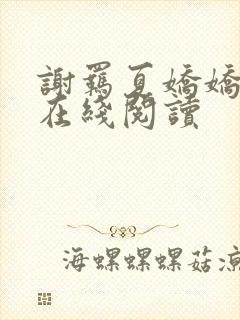 謝羈夏嬌嬌
在綫閱讀
海螺螺螺菇涼